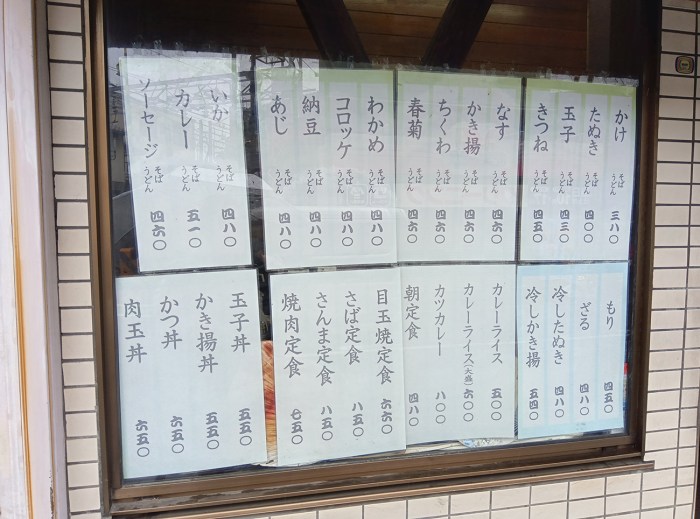 かけ そば うどん 三八〇
たぬき そば うどん 四〇〇
玉子 そば うどん 四三〇
きつね そば うどん 四五〇
なす そば うどん 四六〇
かき揚 そば うどん 四六〇
ちくわ そば うどん 四六〇
春菊 そば うどん 四六〇
わかめ そば うどん 四八〇
コロッケ そば うどん 四八〇
納豆 そば うどん 四八〇
あじ そば うどん 四八〇
いか そば うどん 四八〇
カレー そば うどん 五一〇
ソーセージ そば うどん 四六〇
もり 四五〇
ざる 四八〇
冷したぬき 四八〇
冷しかき揚 五四〇
カレーライス 五〇〇
カレーライス(大盛) 六〇〇
カツカレー 八〇〇
朝定食 四八〇
目玉焼定食 六六〇
さば定食 八五〇
さんま定食 八五〇
焼肉定食 七五〇
玉子丼 五五〇
かき揚丼 五五〇
かつ丼 六五〇
肉玉丼 六五〇